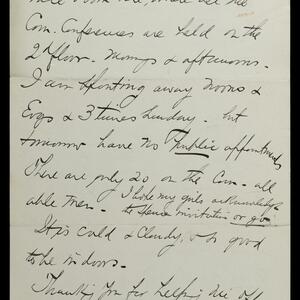 Com. Conferences are held on the
2nd floor. Mornings & afternoons.
I am spouting away Noons &
Eve's & 3 times Sunday. but
tomorrow have no Public appointments
There are only 20 on the Com - all
able men. I hope my girls acknowledge
the Spence invitation or go
It is cold & Cloudy, & so good
to be indoors.
Thanking you for helping me off